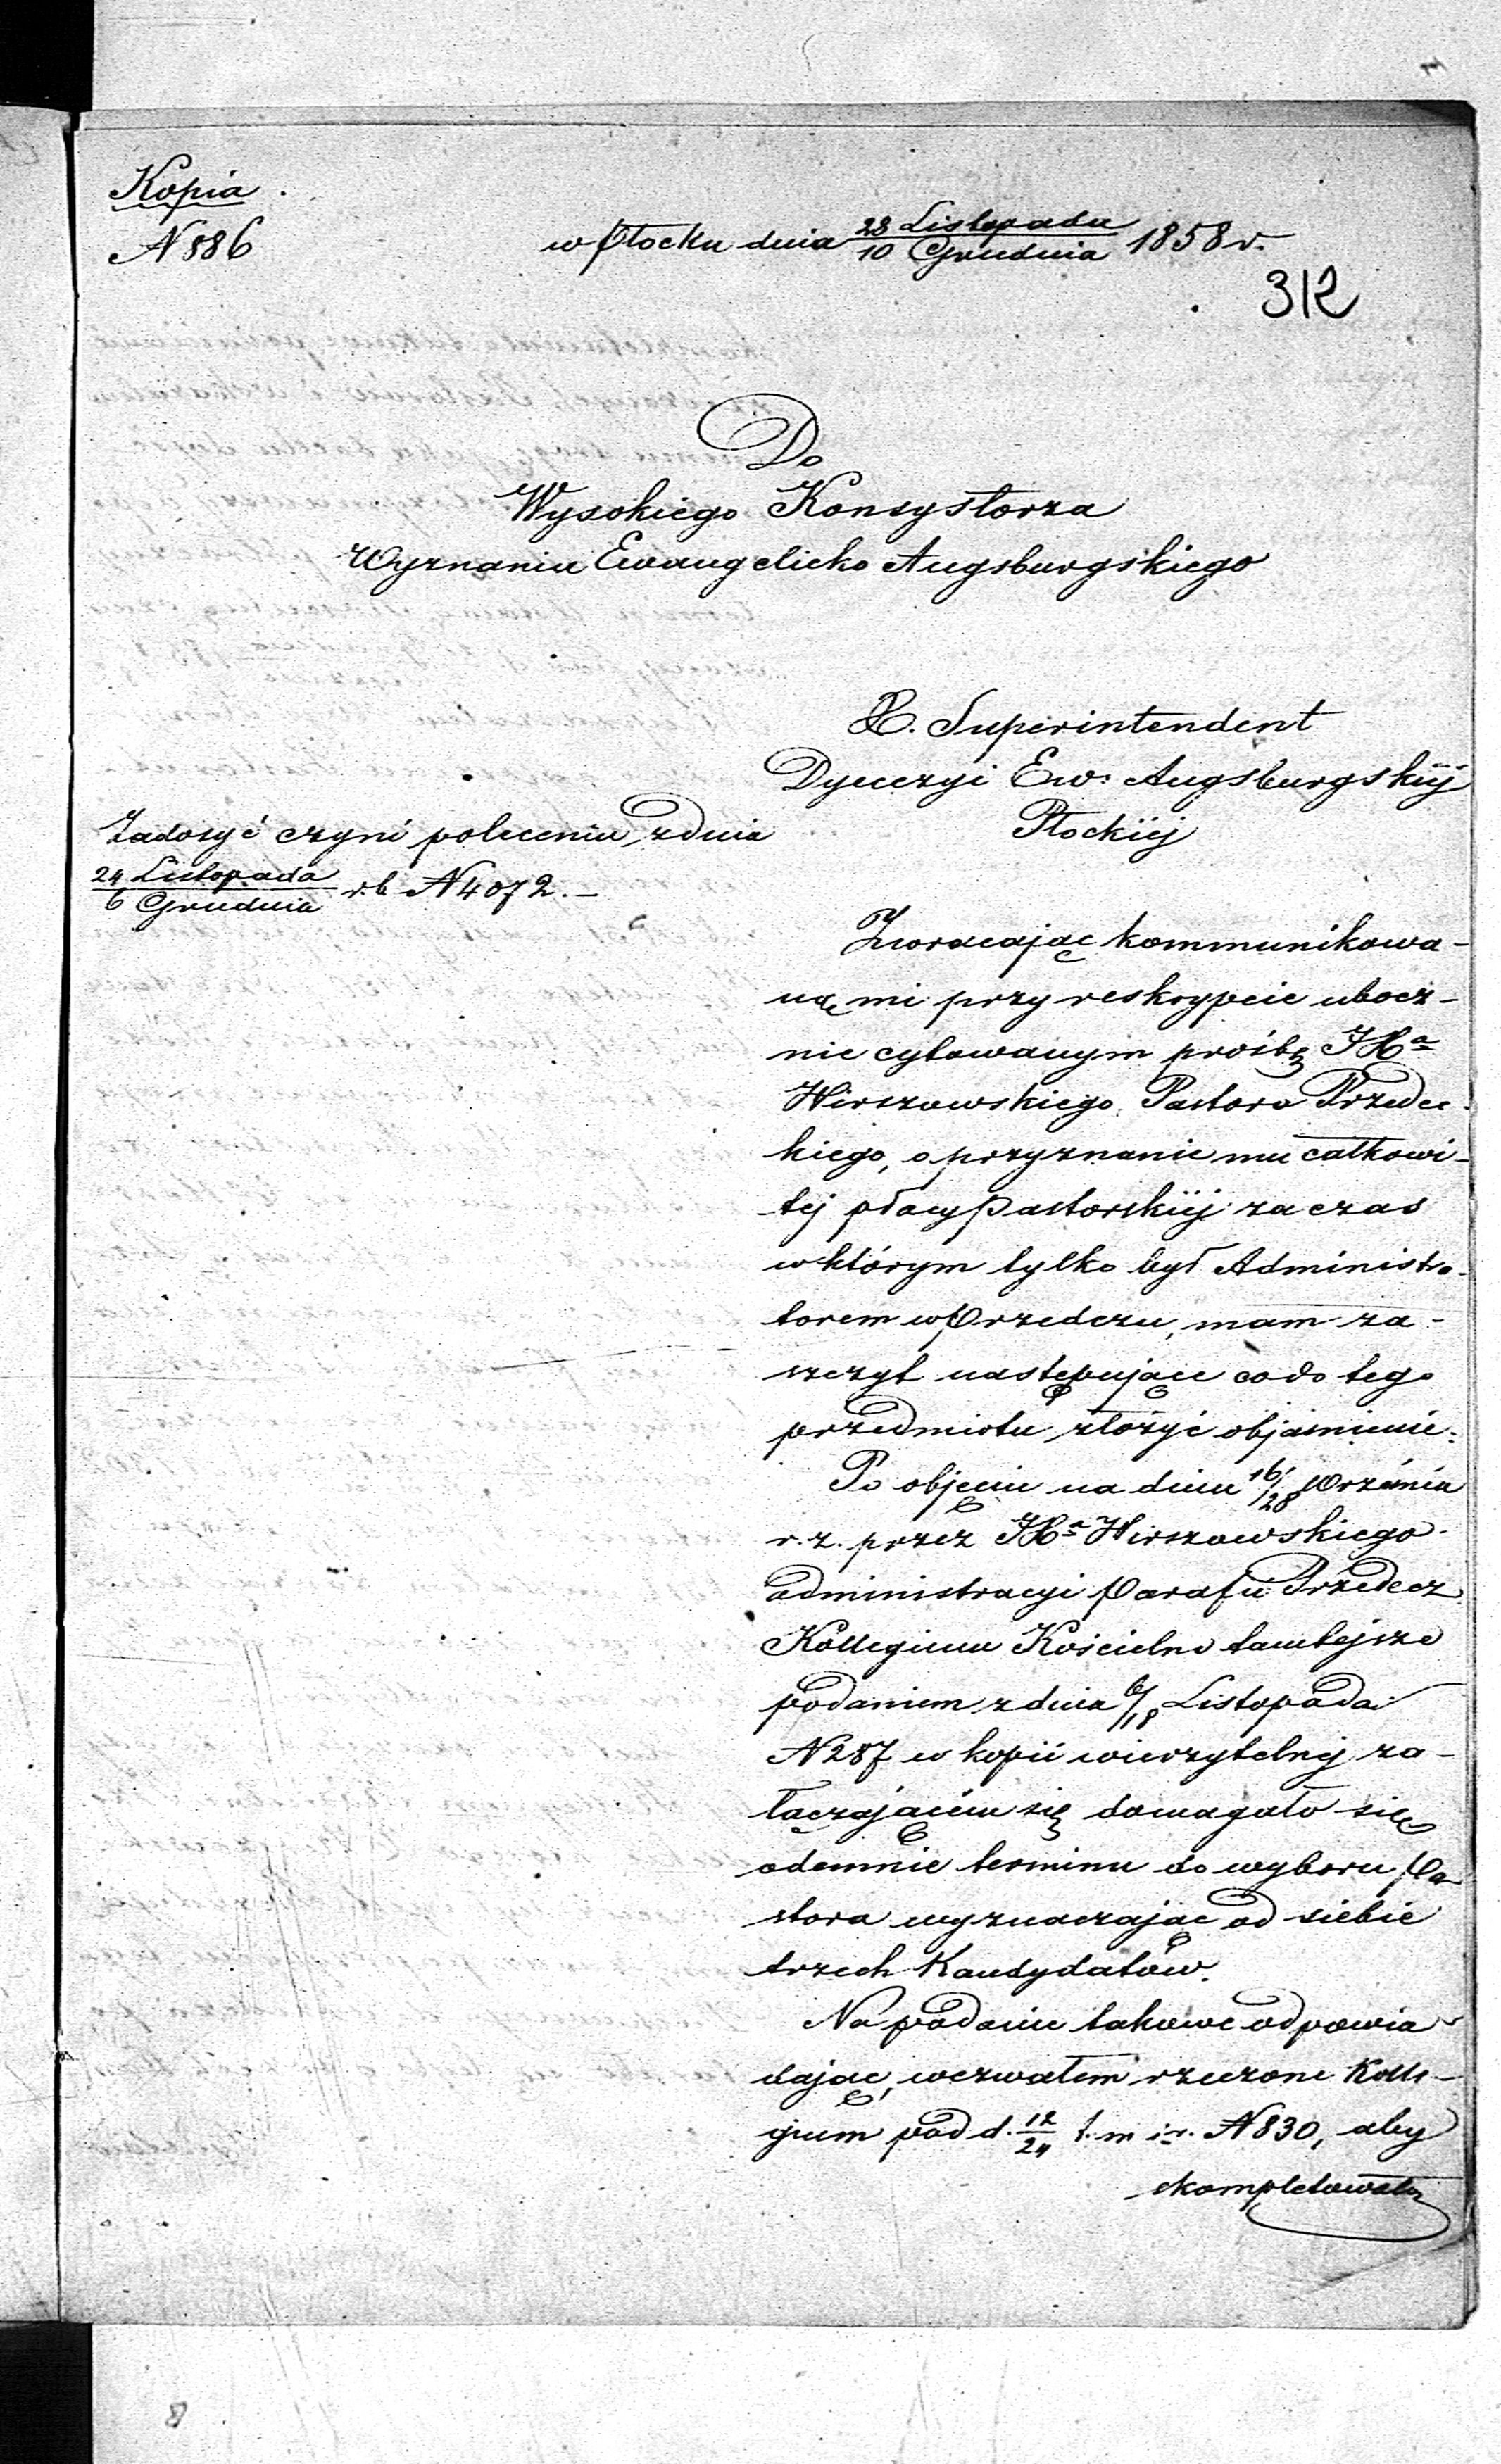 Kopia.
N 886
w Płocku dnia 28 Listopada / 10 Grudnia 1858 r.
312
Do
Wysokiego Konsystorza
Wyznania Ewangelicko Augsburgskiego
X. Superintendent
Dyecezyi Ew: Augsburgskiéj
Płockiéj
Zadosyć czyni poleceniu z dnia
24 Listopada / 6 Grudnia r. b N 4072.–
Zwracając kommunikowa-
ną mi przy reskrypcie ubocz-
nie cytowanym prośbę JXa
Hirszowskiego Pastora Przedec-
kiego, o przyznanie mu całkowi-
tej płacy Pastorskiéj za czas
w którym tylko był Administra-
torem w Przedczu, mam za-
szczyt następujące co do tego
przedmiotu złożyć objasnienie:
Po objęciu na dniu 16/28 Września
r. z. przez JXa Hirszowskiego
administracyi Parafii Przedecz
Kollegium Kościelne tamtejsze
podaniem z dnia 6/18 Listopada
N 287 w kopii wierzytelnéj za-
łączającém się domagało się
odemnie terminu do wyboru Pa-
stora wyznaczając od siebie
trzech Kandydatów.
Na podanie takowe odpowia-
dając, wezwałem rzeczone Kolle-
gium pod d. 12/24 t. m i r. N 830, aby
skompletowało